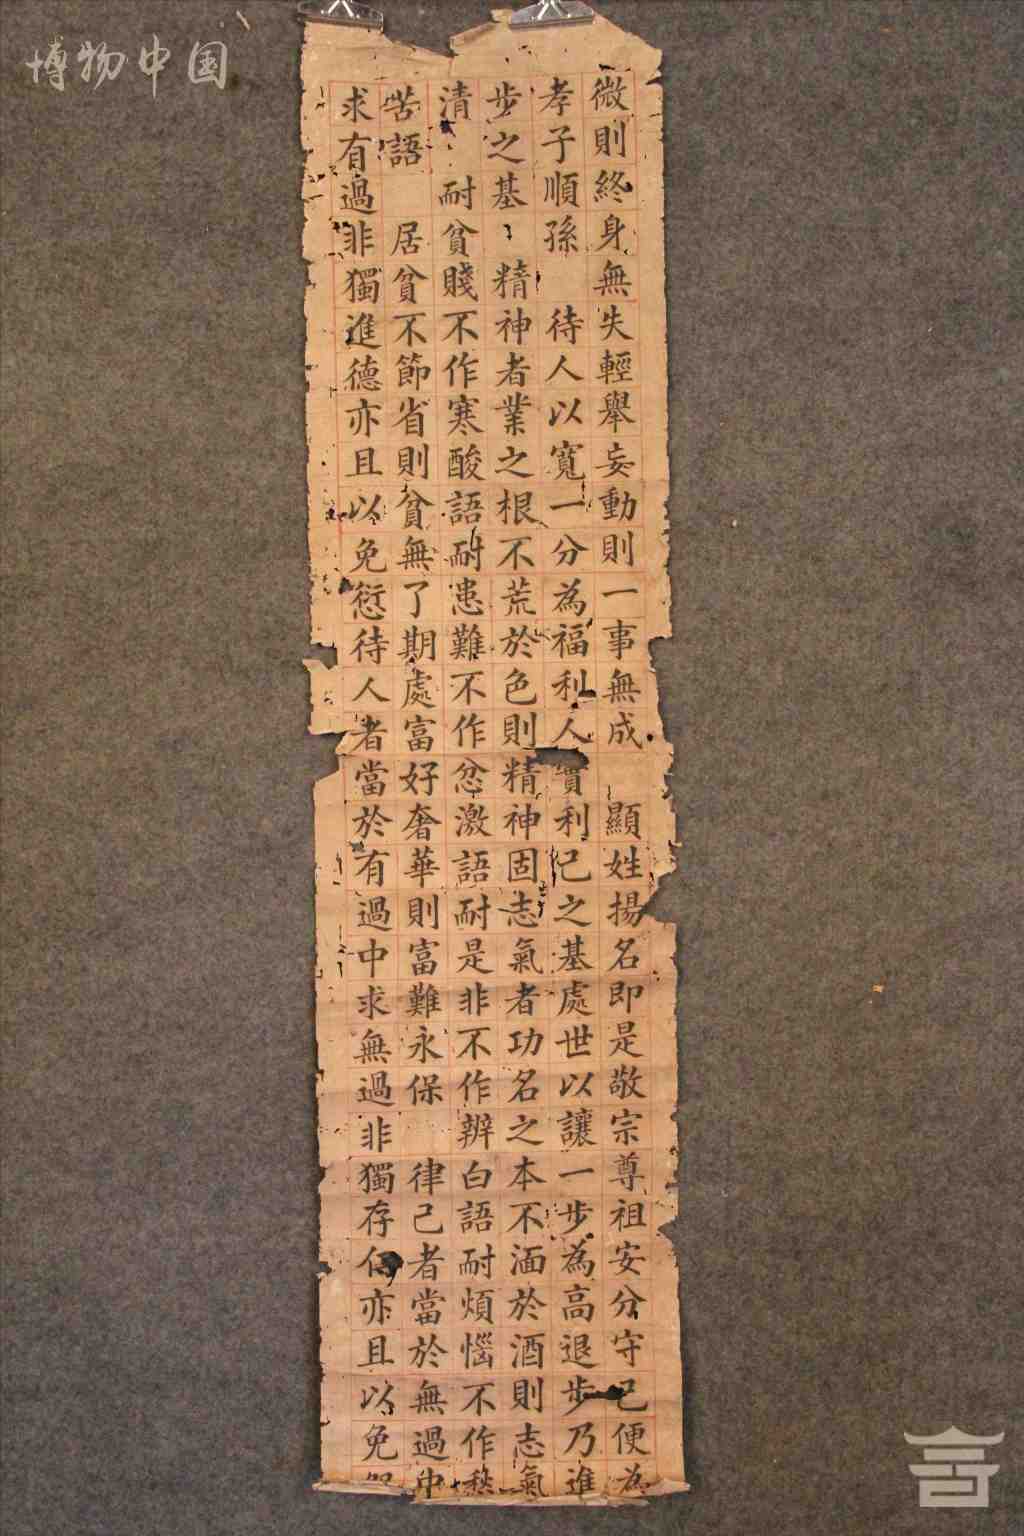 博物中国
微則終身無失輕舉妄動則一事無成 顯姓揚名即是敬宗尊祖安分守己便為
孝子順孫 待人以寬一分為福利人實利己之基處世以讓一步為高退步乃進
步之基 精神者業之根不荒於色則精神固志氣者功名之本不湎於酒則志氣
清 耐貧賤不作寒酸語耐患難不作忿激語耐是非不作辨白語耐煩惱不作愁
苦語 居貧不節省則貧無了期處富好奢華則富難永保 律己者當於無過中
求有過非獨進德亦且以免愆待人者當於有過中求無過非獨存仁亦且以免